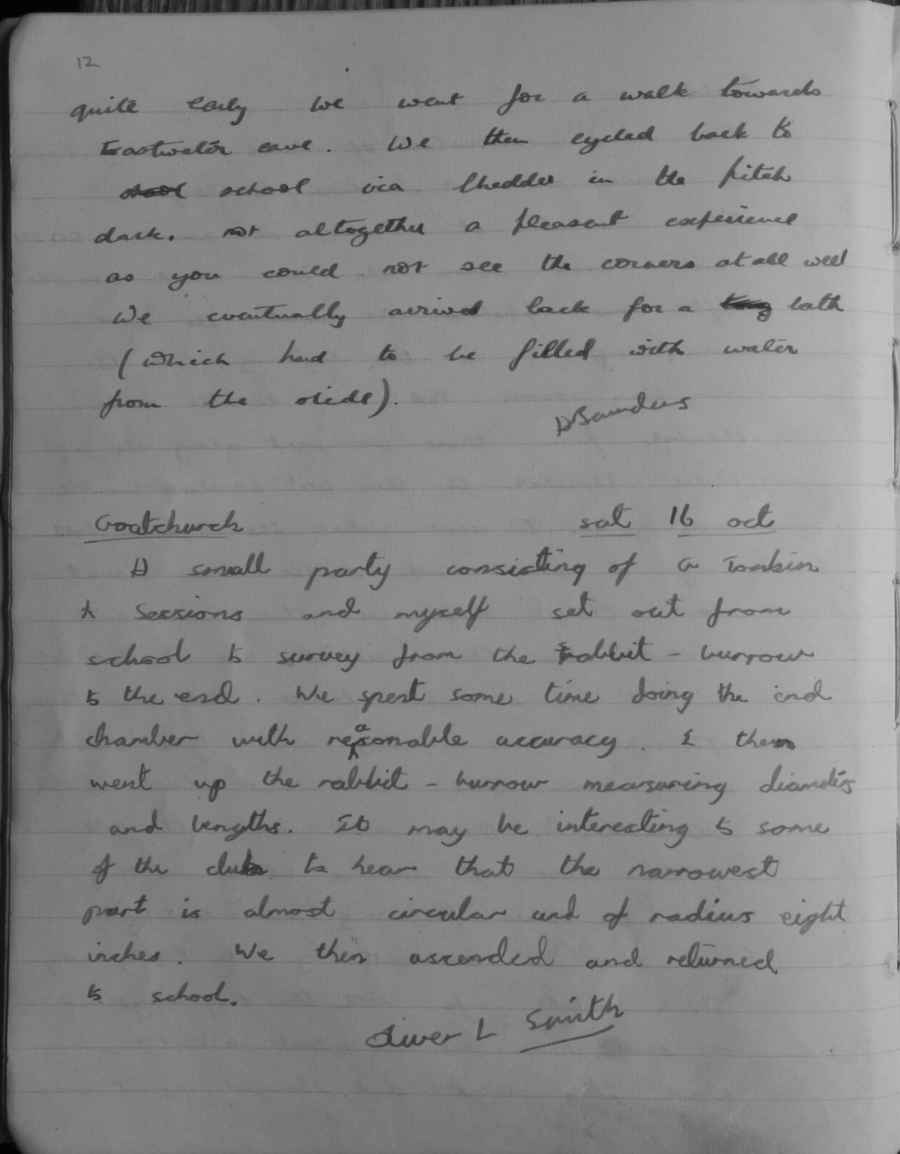 12
quite early we went for a walk towards
Eastwater cave. We then cycled back to
school school via Chedder in the pitch
dark. not altogether a pleasant experience
as you could not see the corners at all well
We eventually arrived back for a bath
(which had to be filled with water
from the slide).
D Saunders
Goatchurch sat 16 oct
A small party consisting of G Tomkin
A Sessions and myself set out from
school to survey from the rabbit - burrow
to the end. We spent some time doing the end
chamber with reasonable accuracy. I then
went up the rabbit - burrow measuring diameters
and lengths. It may be interesting to some
of the club to hear that the narrowest
part is almost circular and of radius eight
inches. We then ascended and returned
to school.
Oliver L Smith